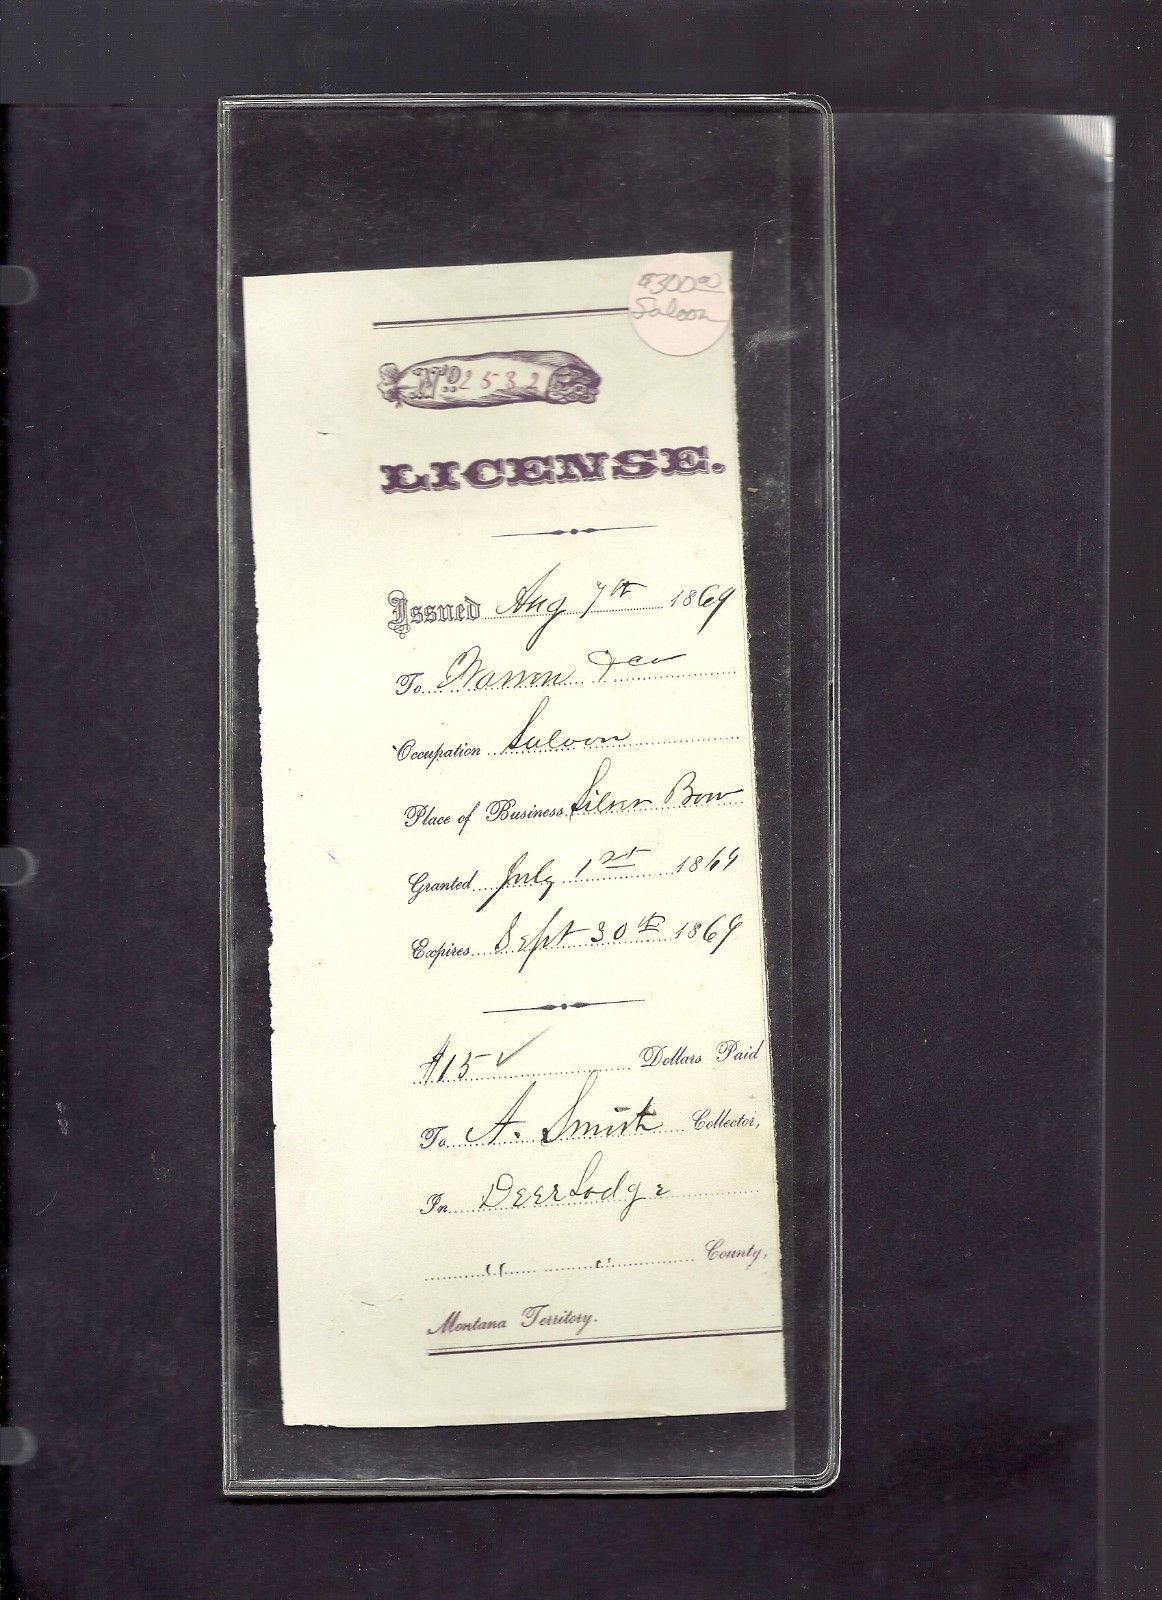 $300.00
Saloon
No. 2532
LICENSE.
Issued Aug 7th 1869
To Warren & Co
Occupation Saloon
Place of Business Silver Bow
Granted July 1st 1869
Expires Sept 30th 1869
$15 ✓ Dollars Paid
To A. Smith Collector,
In Deer Lodge
" " County,
Montana Territory.